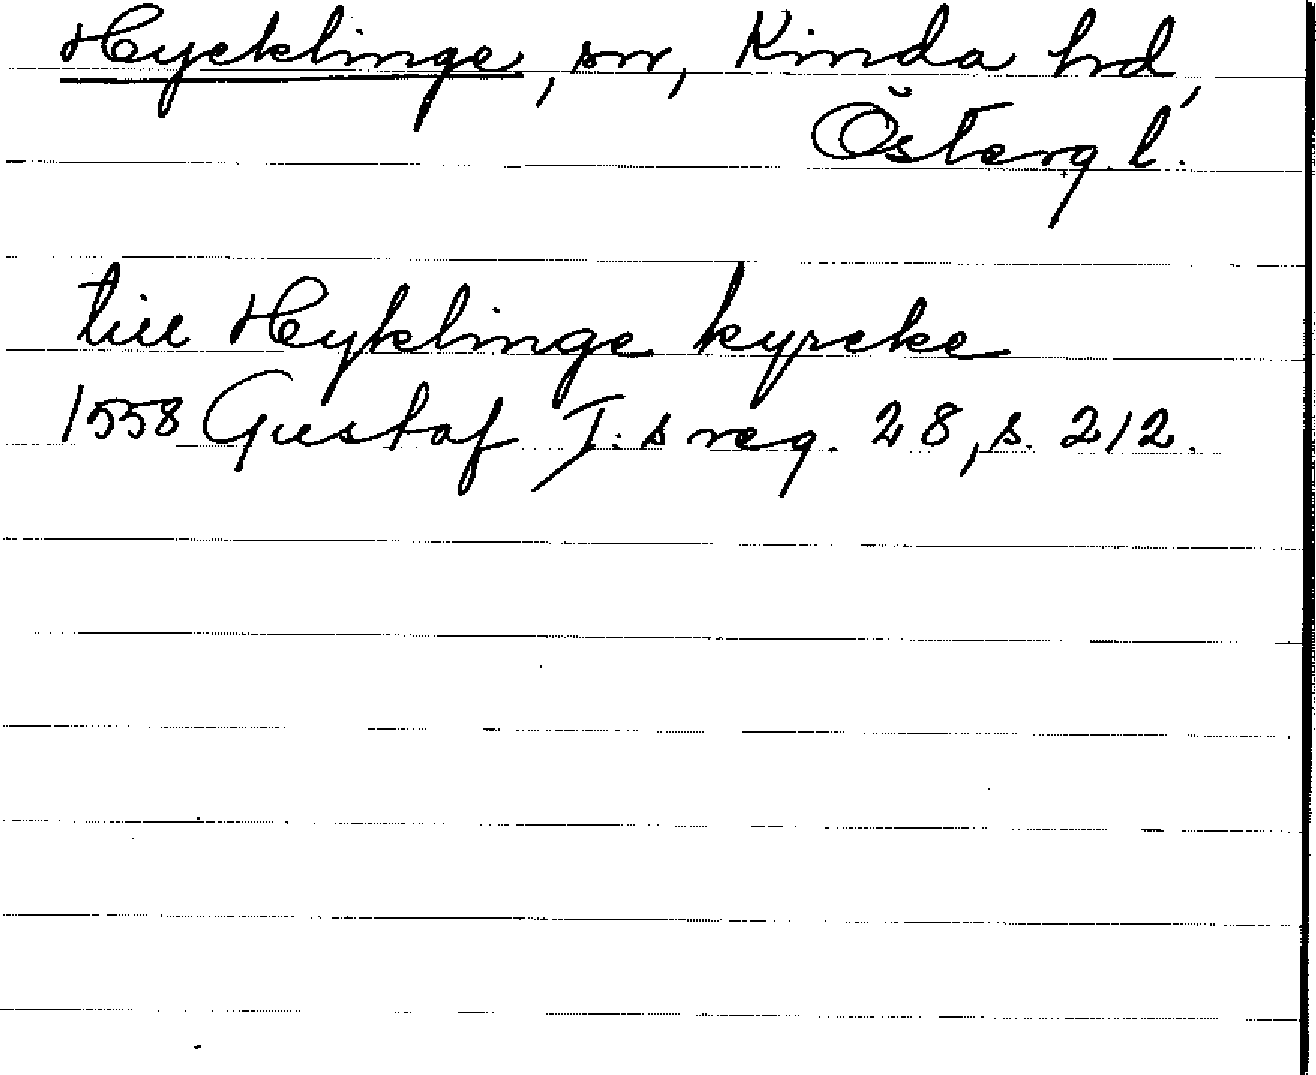 Hycklinge, sn, Kinda hd,
Österg. l.
till Hyklinge kyrcke
1558 Gustaf I:s reg. 28, s. 212.